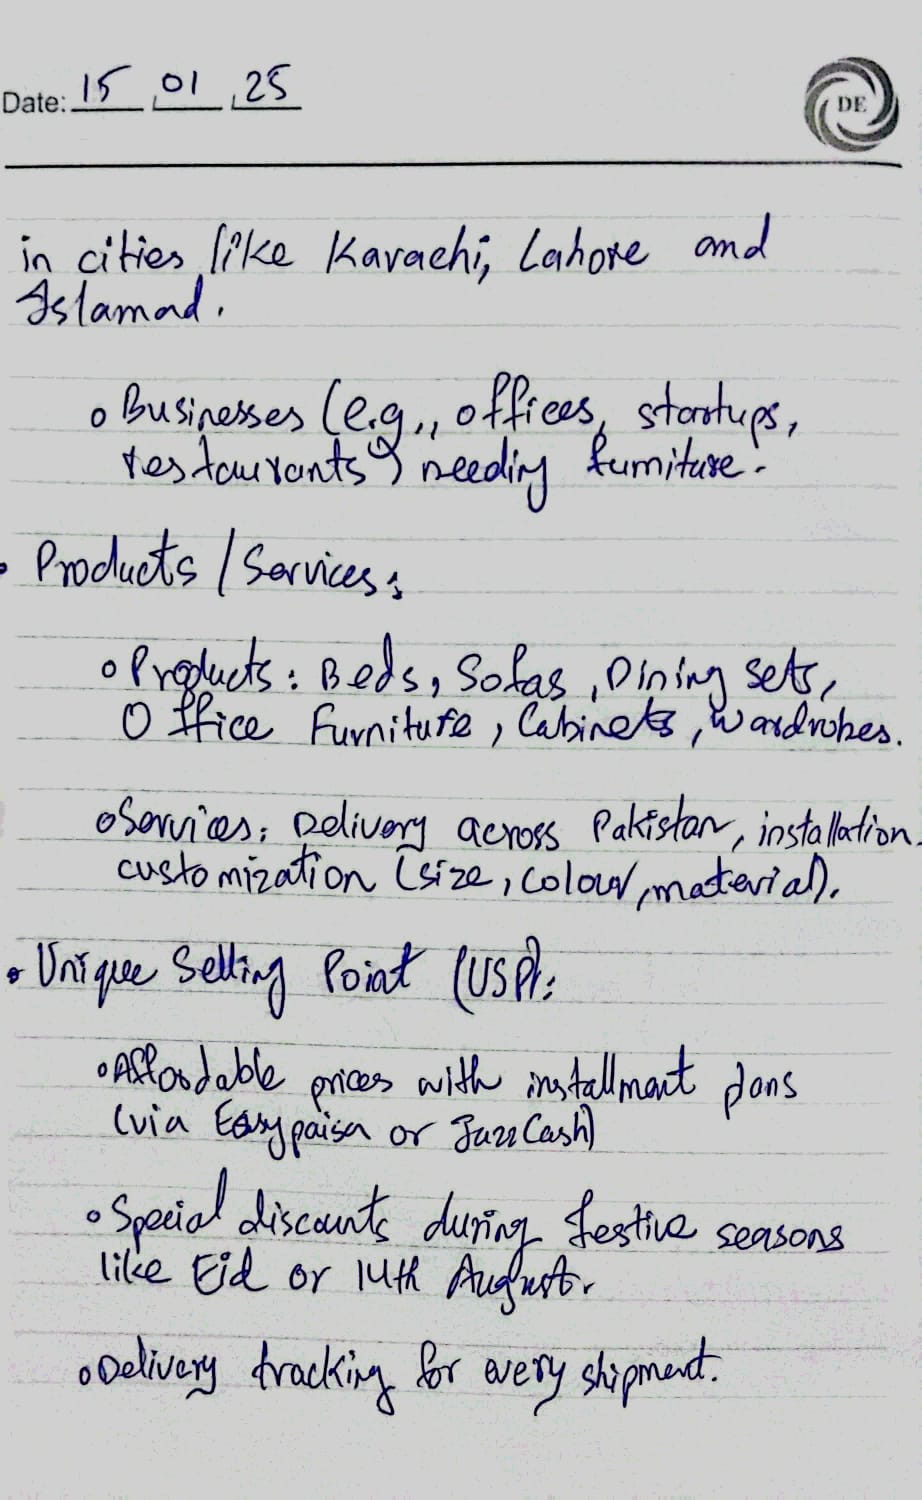 Date: 15 01 25
DE
in cities like Karachi, Lahore and
Islamad.
o Businesses (e.g., offices, startups,
restaurants) needing furniture.
• Products / Services:
o Products: Beds, Sofas, Dining sets,
Office Furniture, Cabinets, Wardrobes.
o Services: Delivery across Pakistan, installation,
customization (size, colour, material).
• Unique Selling Point (USP):
o Affordable prices with installment plans
(via Easypaisa or JazzCash)
o Special discounts during festive seasons
like Eid or 14th August.
o Delivery tracking for every shipment.